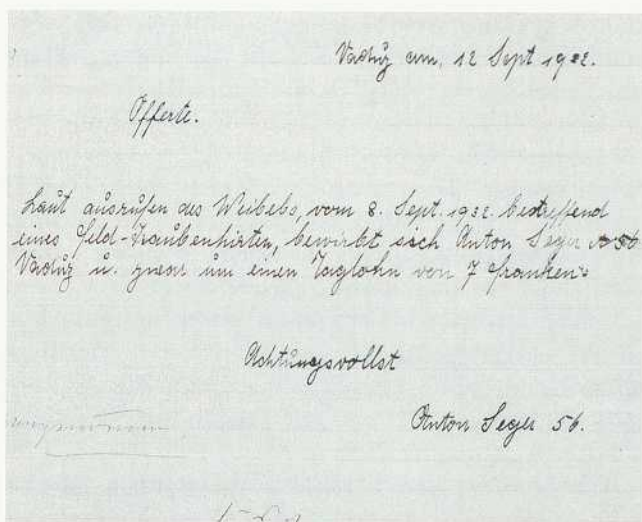 Vaduz am, 12 Sept 1932.
Offerte.
Laut ausrufen des Weibels, vom 8. Sept. 1932. betreffend
eines Feld-Traubenhirten, bewirbt sich Anton Seger 56
Vaduz u. zwar um einen Taglohn von 7 Franken.
Achtungsvollst
Anton Seger 56.